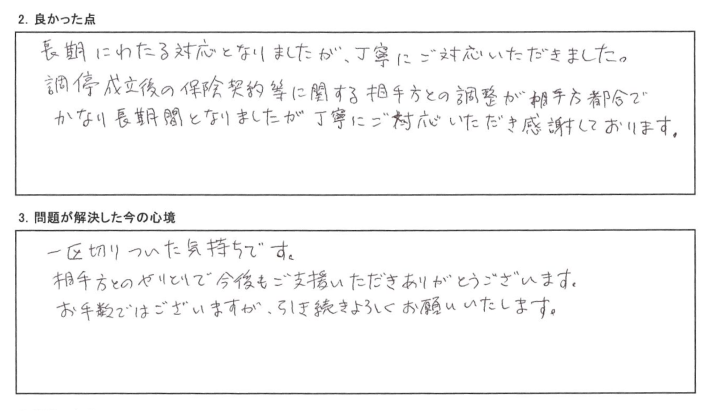 2. 良かった点
長期にわたる対応となりましたが、丁寧にご対応いただきました。
調停成立後の保険契約等に関する相手方との調整が相手方都合で
かなり長期間となりましたが丁寧にご対応いただき感謝しております。
3. 問題が解決した今の心境
一区切りついた気持ちです。
相手方とのやりとりで今後もご支援いただきありがとうございます。
お手数ではございますが、引き続きよろしくお願いいたします。